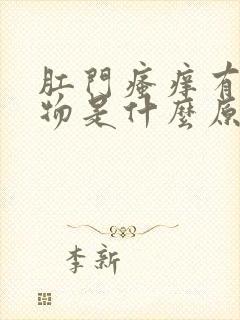 肛門瘙痒有
物是什麼原
李新